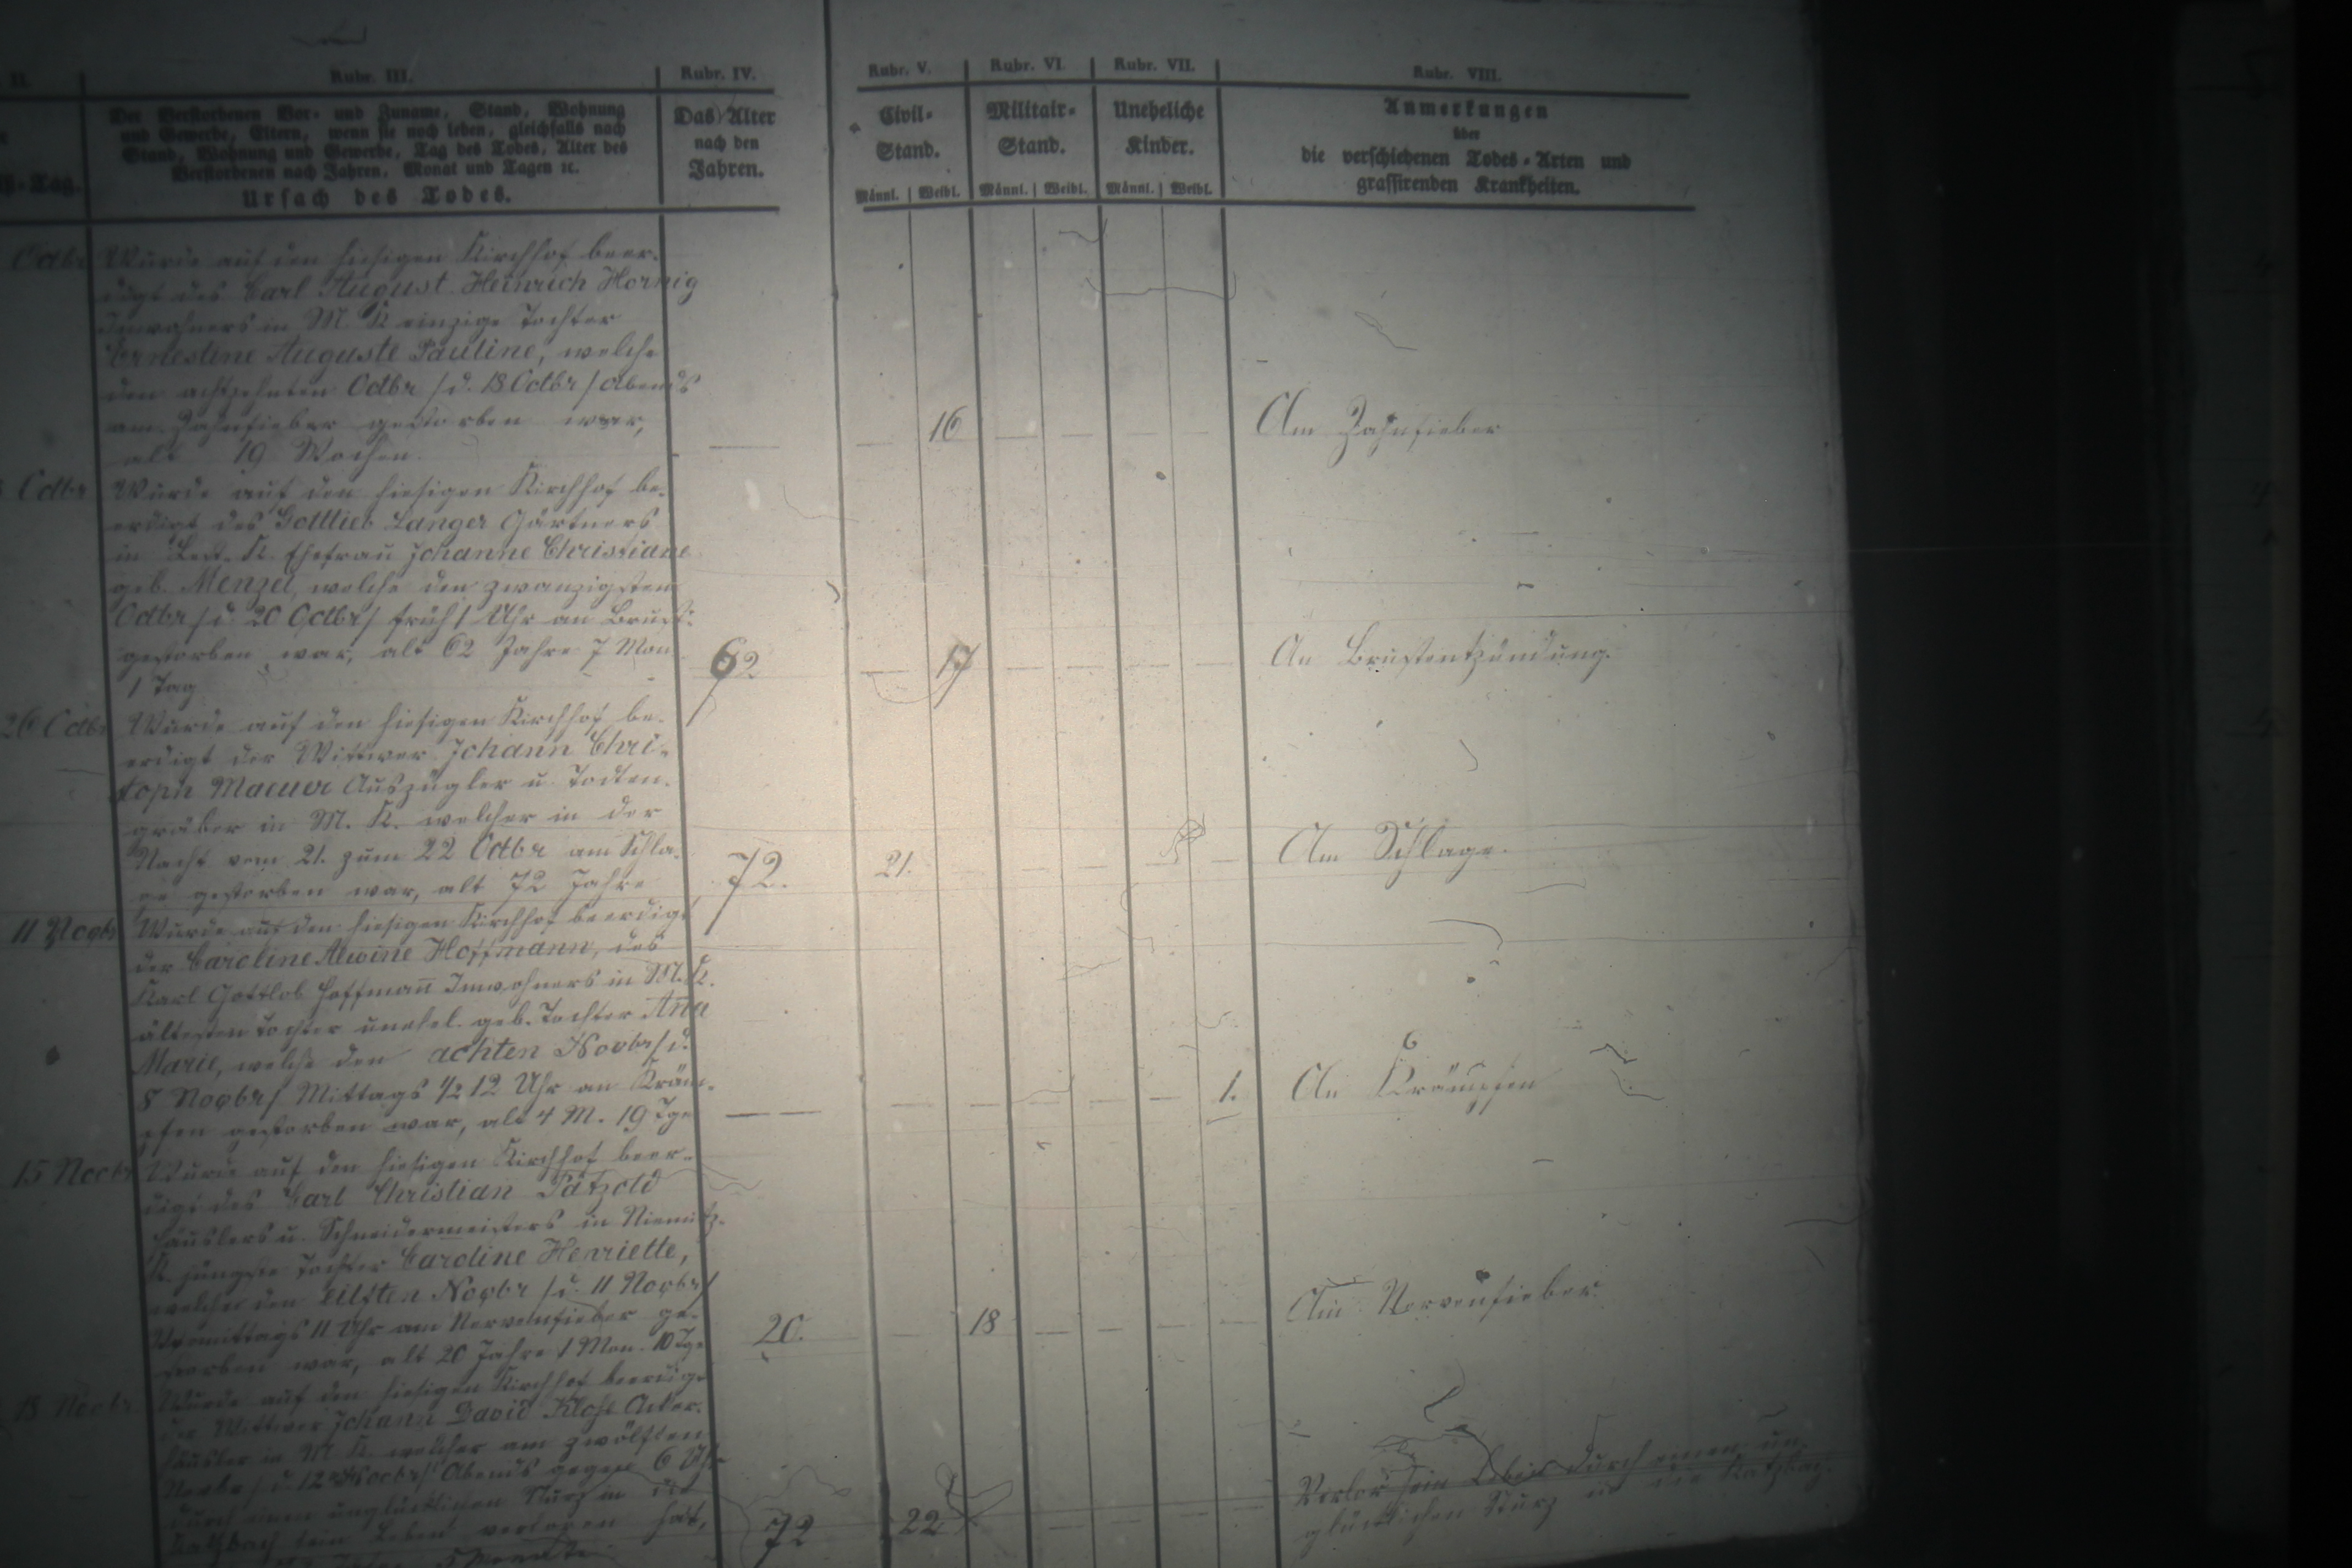 II.
Rubr. III.
Rubr. IV.
Rubr. V.
Rubr. VI.
Rubr. VII.
Rubr. VIII.
Der Verstorbenen Vor- und Zuname, Stand, Wohnung
und Gewerbe, Eltern, wenn sie noch leben, gleichfalls nach
Stand, Wohnung und Gewerbe, Tag des Todes, Alter des
Verstorbenen nach Jahren, Monat und Tagen ꝛc.
Ursach des Todes.
Das Alter
nach den
Jahren.
Civil-
Stand.
Männl. | Weibl.
Militair-
Stand.
Männl. | Weibl.
Uneheliche
Kinder.
Männl. | Weibl.
Anmerkungen
über
die verschiedenen Todes-Arten und
grassirenden Krankheiten.
-Tag.
Octbr
Wurde auf den hiesigen Kirchhof beer-
digt des Carl August Heinrich Hornig
Inwohners in M. K einzige Tochter
Ernestine Auguste Pauline, welche
den achtzehnten Octbr /d. 18 Octbr/ Abends
am Zahnfieber gestorben war,
alt 19 Wochen.
— — 16 — — — —
Am Zahnfieber
Octbr
Wurde auf den hiesigen Kirchhof be-
erdigt des Gottlieb Langer Gärtners
in K. Ehefrau Johanne Christiane
geb. Menzel, welche den zwanzigsten
Octbr /d. 20 Octbr/ früh 1 Uhr an Brust-
gestorben war, alt 62 Jahre 7 Mon
1 Tag
62 — 17 — — — —
An Brustentzündung.
26 Octbr
Wurde auf den hiesigen Kirchhof be-
erdigt der Wittwer Johann Chri-
stoph Maeuer Auszügler u. Todten-
gräber in M. K. welcher in der
Nacht vom 21. zum 22 Octbr am Schla-
ge gestorben war, alt 72 Jahre
72. 21. — — — —
Am Schlage.
11 Novbr
Wurde auf den hiesigen Kirchhof beerdigt
der Caroline Alwine Hoffmann, des
Karl Gottlob Hoffmañ Inwohners in M. K.
ältesten Tochter unehel. geb. Tochter Aña
Marie, welche den achten Novbr /d.
8 Novbr/ Mittags 1/2 12 Uhr an Kräm-
pfen gestorben war, alt 4 M. 19 Tge
— — — — — — 1.
An Krämpfen
15 Novbr
Wurde auf den hiesigen Kirchhof beer-
digt des Carl Christian Pätzold
Häuslers u. Schneidermeisters in Niemitz-
K. jüngste Tochter Caroline Henriette,
welche den eilften Novbr /d. 11 Novbr/
Vormittags 11 Uhr am Nervenfieber ge-
storben war, alt 20 Jahre 1 Mon. 10 Tge
20. — 18 — — — —
Am Nervenfieber.
18 Novbr
Wurde auf den hiesigen Kirchhof beerdigt
der Wittwer Johann David Klose Acker-
häusler in M K. welcher am zwölften
Novbr /d 12 Novbr/ Abends gegen 6 Uhr
durch einen unglücklichen Sturz in die
Katzbach sein Leben verloren hat,
72 22 — — — —
Verlor sein Leben durch einen un-
glücklichen Sturz in die Katzbach.